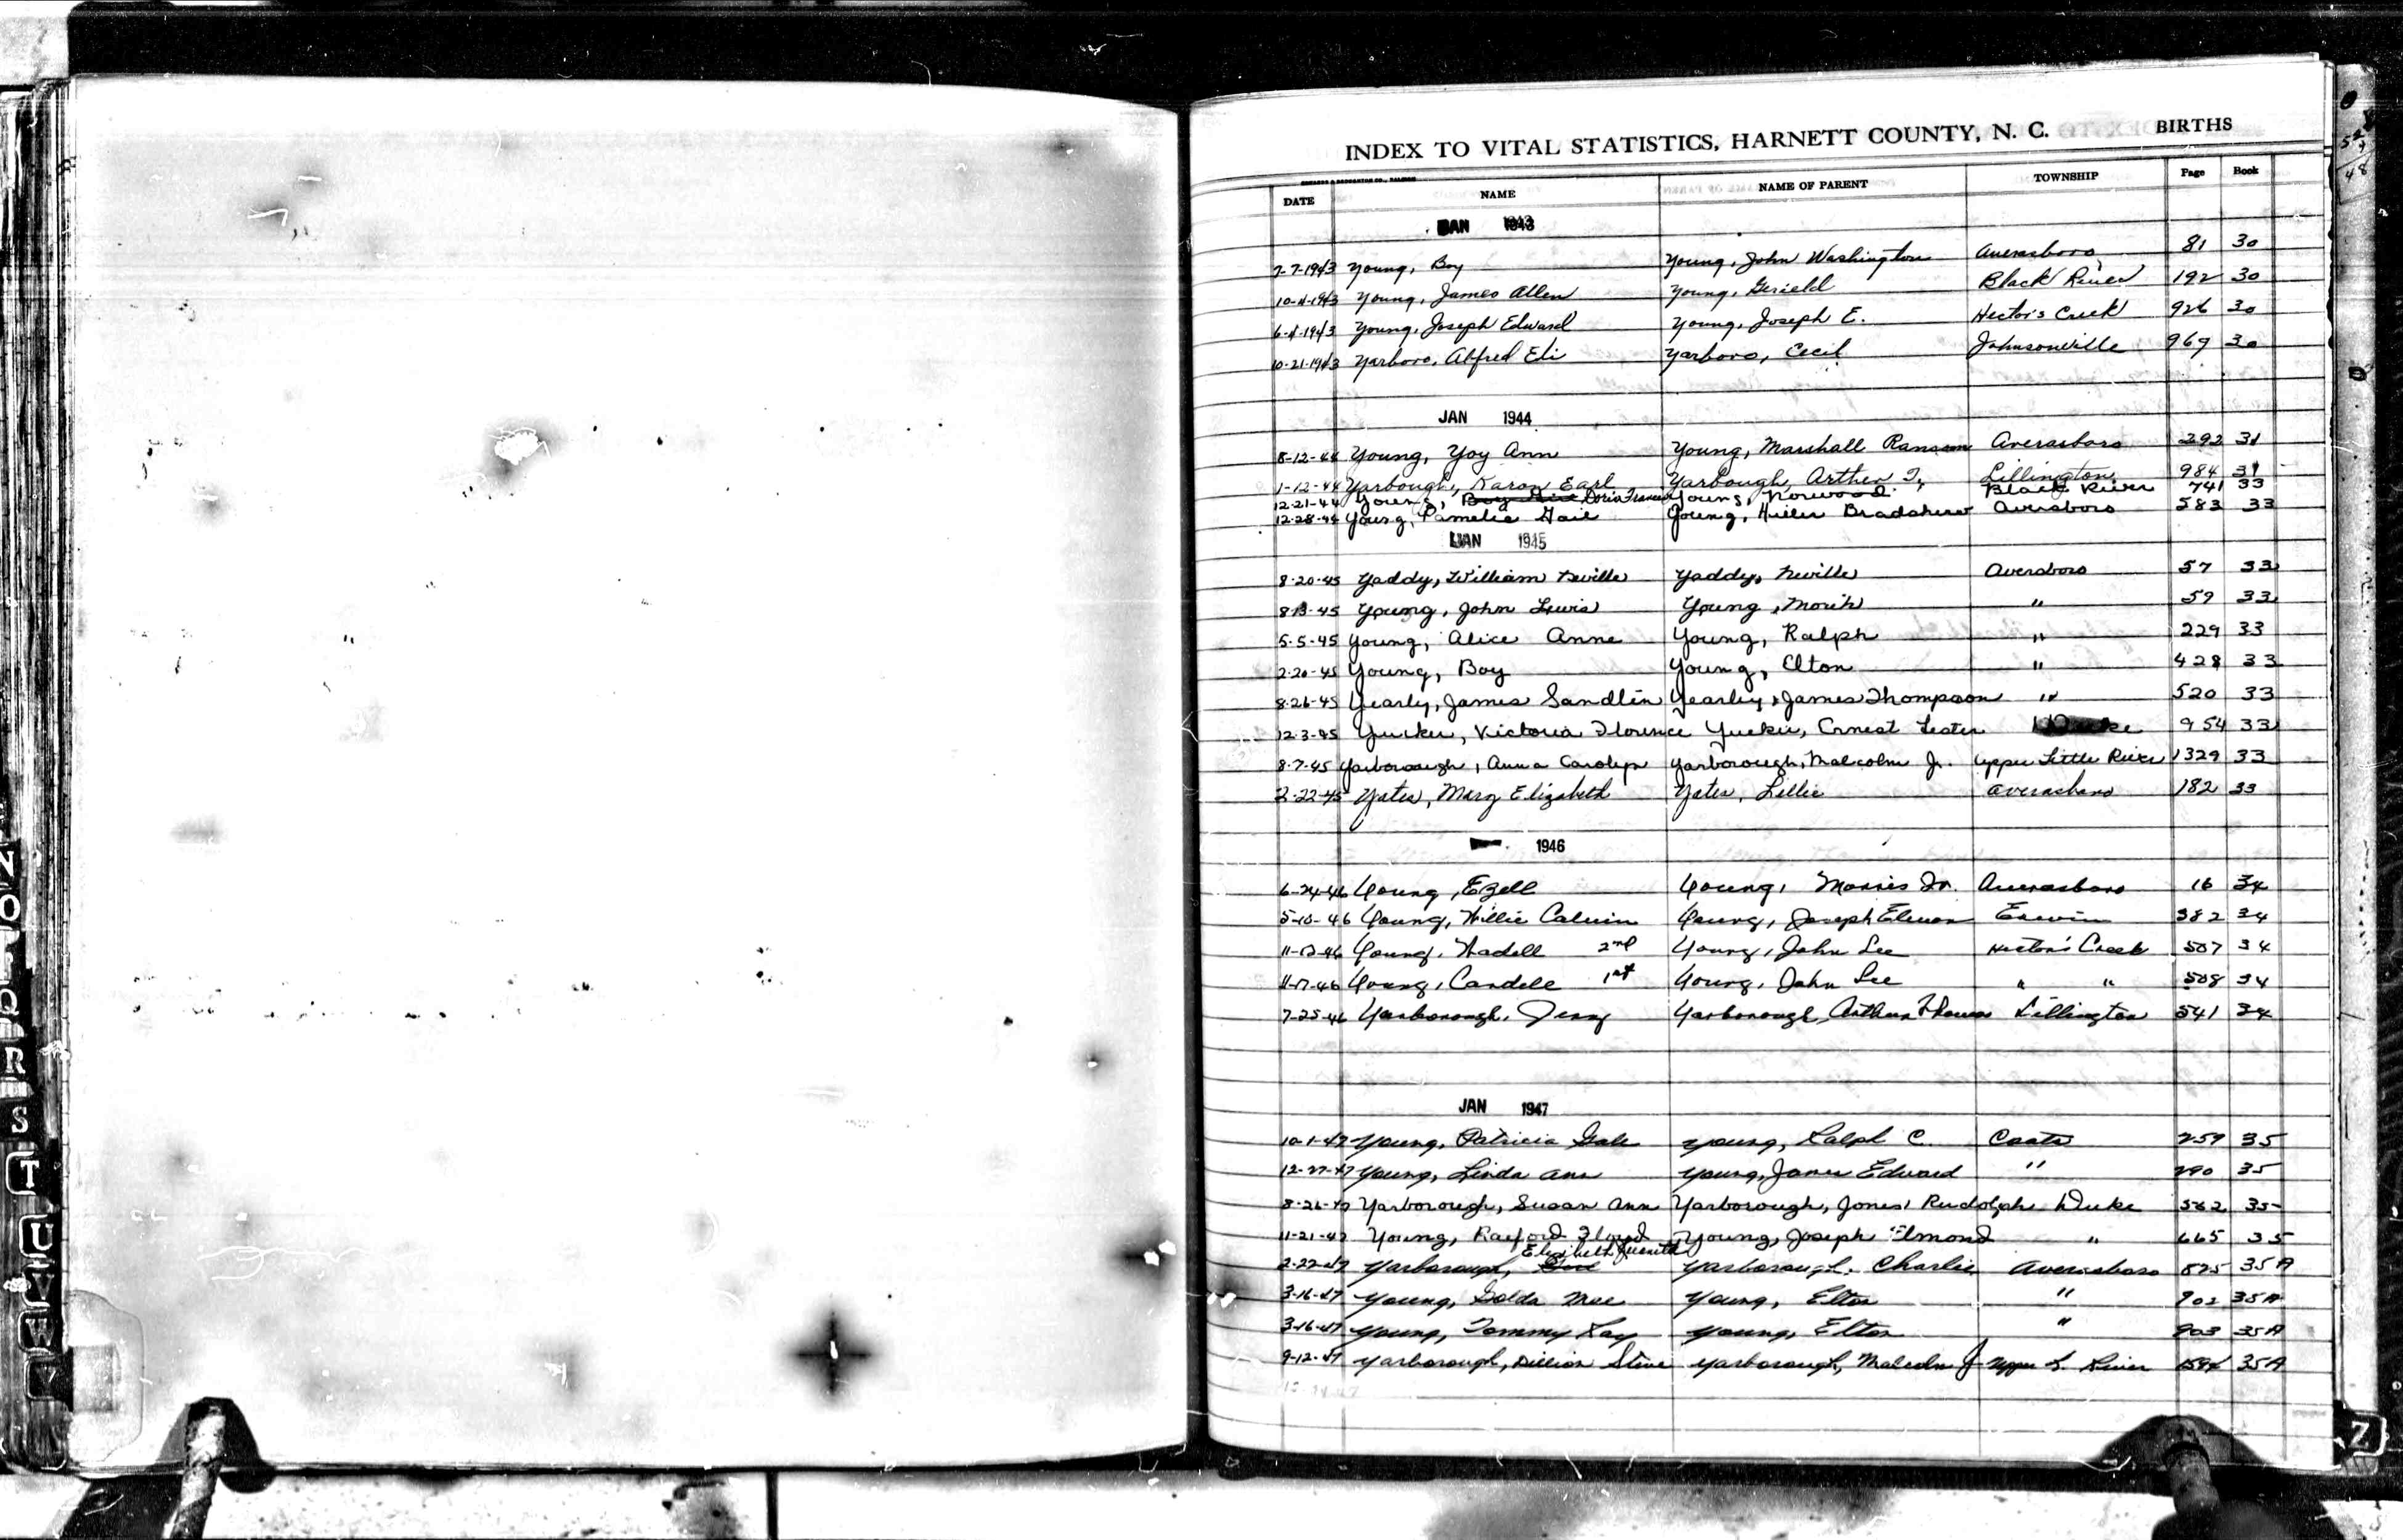 INDEX TO VITAL STATISTICS, HARNETT COUNTY, N. C. BIRTHS
DATE NAME NAME OF PARENT TOWNSHIP Page Book
JAN 1943
7-7-1943 Young, Boy Young, John Washington Averasboro 81 30
10-4-1943 Young, James Allen Young, Black River 192 30
6-4-1943 Young, Joseph Edward Young, Joseph E. Hector's Creek 926 30
10-21-1943 Yarboro, Alfred Eli Yarboro, Cecil Johnsonville 969 30
JAN 1944
8-12-44 Young, Yoy Ann Young, Marshall Ransom Averasboro 292 31
1-12-44 Yarbough, Karon Earl Yarbough, Arther T. Lillington 984 31
12-21-44 Young, Doris Frances Young, Norwood Black River 741 33
12-28-44 Young, Pamelia Gail Young, Bradshaw Aversboro 583 33
JAN 1945
8-20-45 Yaddy, William Neville Yaddy, Neville Aversboro 57 33
8-13-45 Young, John Lewis Young, " 59 33
5-5-45 Young, Alice Anne Young, Ralph " 229 33
2-20-45 Young, Boy Young, Elton " 428 33
8-26-45 Yearly, James Sandlin Yearly, James Thompson " 520 33
12-3-45 Victoria Florence Ernest Lester Duke 954 33
8-7-45 Yarborough, Anna Carolyn Yarborough, Malcolm Jr. Upper Little River 1329 33
2-22-45 Yates, Mary Elizabeth Yates, Lillie Averasboro 182 33
1946
6-24-46 Young, Ezell Young, Morris Jr. Averasboro 16 34
5-10-46 Young, Willie Calvin Young, Joseph Erwin 382 34
11-17-46 Young, Wadell 2nd Young, John Lee Hector's Creek 507 34
11-17-46 Young, Candell 1st Young, John Lee " " 508 34
7-25-46 Yarborough, Jerry Yarborough, Arthur Thomas Lillington 541 34
JAN 1947
10-1-47 Young, Patricia Gale Young, Ralph C. Coats 259 35
12-27-47 Young, Linda Ann Young, James Edward " 290 35
8-26-47 Yarborough, Susan Ann Yarborough, Jones Rudolph Duke 562 35
11-21-47 Young, Raeford Floyd Young, Joseph Elmond " 665 35
Elizabeth Juanita
2-22-47 Yarborough, Girl Yarborough, Charlie Averasboro 825 35A
3-16-47 Young, Golda Mae Young, Elton " 902 35A
3-16-47 Young, Tommy Ray Young, Elton " 903 35A
9-12-47 Yarborough, Dillion Steve Yarborough, Malcolm J Upper L. River 35A
N
O
P
Q
R
S
T
U
V
W
Y
Z